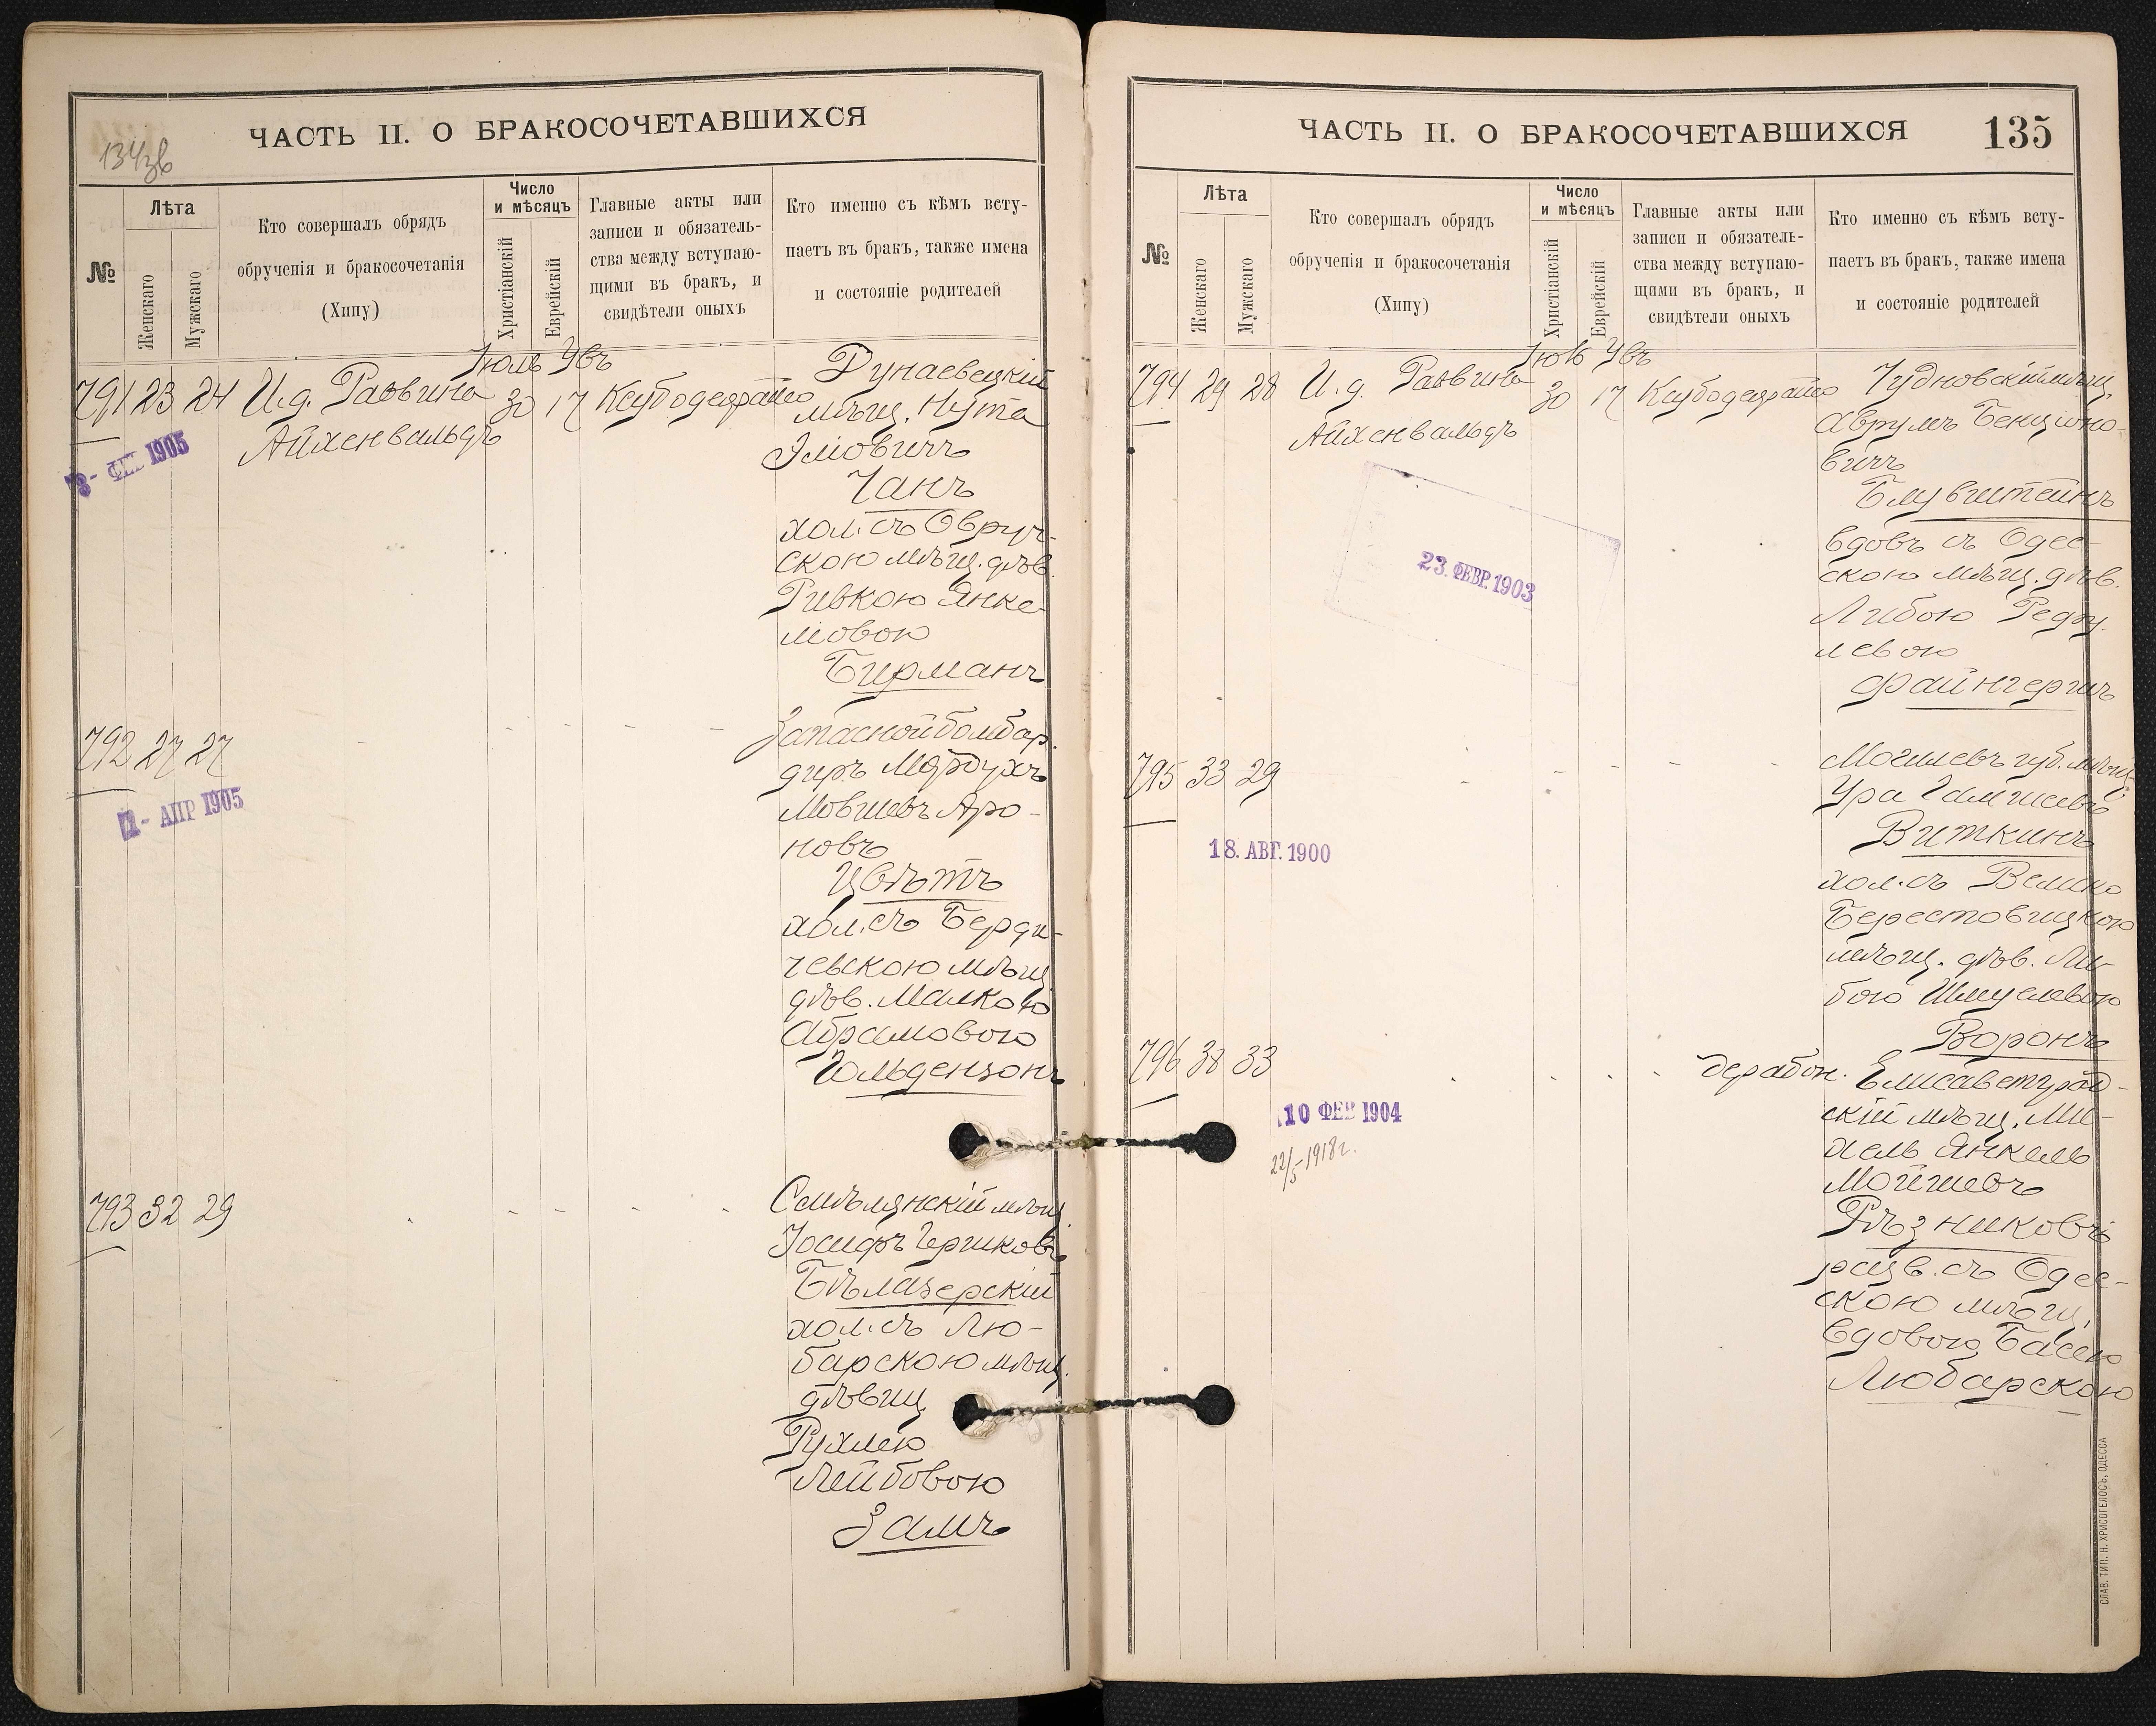 ЧАСТЬ II. О БРАКОСОЧЕТАВШИХСЯ
134зв
№
Лѣта
Женскаго
Мужскаго
Кто совершалъ обрядъ
обрученія и бракосочетанія
(Хипу)
Число
и мѣсяцъ
Христіанскій
Еврейскій
Главные акты или
записи и обязатель-
ства между вступаю-
щими въ бракъ, и
свидѣтели оныхъ
Кто именно съ кѣмъ всту-
паетъ въ бракъ, также имена
и состояніе родителей
Іюль Увъ
791 23 24 И. д. Раввина 30 17
Айхенвальдъ
3- ФЕВ 1905
Дунаевецкій
мѣщ. Нута
Эліовичъ
Чанъ
хол. съ Овруч-
скою мѣщ. дѣв.
Ривкою Янке-
ліовою
Бирманъ
792 27 27
- АПР 1905
Запасной бомбар-
диръ Мордухъ
Мовшевъ Аро-
новъ
Цвѣтъ
хол. съ Берди-
чевскою мѣщ.
дѣв. Малкою
Абрамовою
Гольдензонъ
793 32 29
Смѣлянскій мѣщ.
Іосифъ Гершковъ
Бѣлазерскій
хол. съ Лю-
барскою мѣщ.
дѣвиц.
Рухлею
Лейбовою
Замъ
ЧАСТЬ II. О БРАКОСОЧЕТАВШИХСЯ
135
№
Лѣта
Женскаго
Мужскаго
Кто совершалъ обрядъ
обрученія и бракосочетанія
(Хипу)
Число
и мѣсяцъ
Христіанскій
Еврейскій
Главные акты или
записи и обязатель-
ства между вступаю-
щими въ бракъ, и
свидѣтели оныхъ
Кто именно съ кѣмъ всту-
паетъ въ бракъ, также имена
и состояніе родителей
Увъ
794 29 28 И. д. Раввина 30 17
Айхенвальдъ
23. ФЕВР. 1903
Чудновскій мѣщ.
Аврумъ Бенціоно-
вичъ
Блувштейнъ
вдовъ съ Одес-
скою мѣщ. дѣв.
Либою
левою
Файнгершъ
795 33 29
18. АВГ. 1900
Могилевъ губ. мѣщ.
Ура
Виткинъ
хол. съ Велико
Берестовицкою
мѣщ. дѣв. Ли-
бою Шмулевою
Воронъ
796 38 33
10 ФЕВ 1904
22/5-1918г.
Елисаветград-
скій мѣщ. Ми-
хель Янкель
Мойшевъ
Рѣзниковъ
разв. съ Одес-
скою мѣщ.
вдовою Басею
Любарскою
СЛАВ. ТИП. Н. ХРИСОГЕЛОСЪ, ОДЕССА